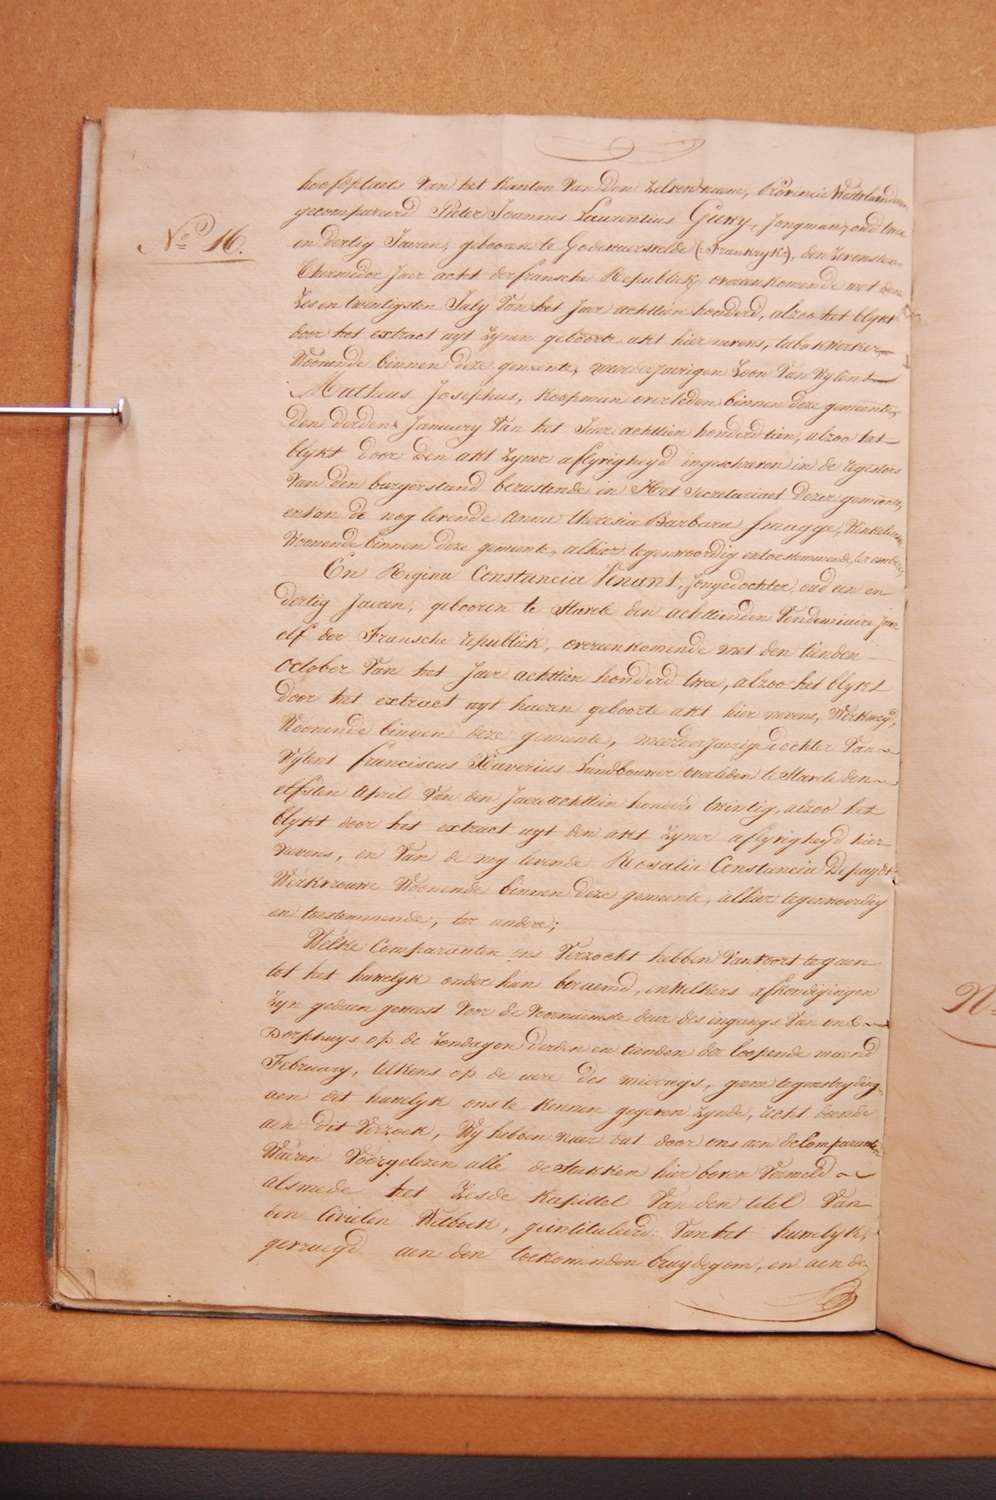 No 16.
hoofdplaets van het kanton van den zelven naem, Provincie West
gecompareerd Pieter Joannes Laurentius Guwy, Jongman, oud twee
en dertig Jaeren, geboren te Godewaersvelde (Frankryk), den zevensten
Thermidor Jaer acht der fransche Republiek, overeenkomende met den
Zes en twintigsten July van het Jaer achttien honderd, alzoo het blykt
door het extract uyt zyner geboorte akt hier nevens, tabakwerker
Woonende binnen deze gemeente, meerderjaerigen Zoon van wylent
Matheus Josephus, koopman overleden binnen deze gemeente,
den derden January van het Jaer achttien honderd tien, alzoo het
blykt door den akt zyner aflyvigheyd ingeschreven in de registers
van den burgerstand berustende in Het Secretariaet dezer gemeente,
en van de nog levende Anna Theresia Barbara
Woonende binnen deze gemeente, alhier tegenwoordig en toestemmende, ter eender;
En Regina Constancia Venant, Jongedochter, oud een en
dertig Jaeren, gebooren te Staeele den achttienden Vendemiaire Jaer
elf der Fransche republiek, overeenkomende met den tienden
October van het Jaer achttien honderd twee, alzoo het blykt
door het extract uyt haeren geboorte akt hier nevens,
Woonende binnen deze gemeente, meerderjaerige dochter van
Wylent Franciscus Xaverius Landbouwer overleden te Staeele den
elfsten April van den Jaere achttien honderd twintig, alzoo het
blykt door het extract uyt den akt zyner aflyvigheyd hier
nevens, en van de nog levende Rosalie Constancia Depuydt
Werkvrouwe Woonende binnen deze gemeente, alhier tegenwoordig
en toestemmende, ter andere;
Welke Comparanten ons verzocht hebben van voort te gaen
tot het huwelyk onder hun beraemd, en welkers afkondigingen
zyn gedaen geweest voor de voornaemste deur des ingangs van ons
Dorphuys op de Zondagen derden en tienden der loopende maend
February, telkens op de uere des middags, geene tegenstryding
aen dit huwelyk ons te kennen gegeven zynde, recht doende
aen dit verzoek, Wy hebben naer dat door ons aen de Comparanten
Waeren voorgelezen alle de stukken hier boven vermeld
alsmede het zesde kapittel van den titel van
den Civielen Wetboek, geïntituleerd: van het huwelyk,
gevraegd aen den toekomenden bruydegom, en aen de